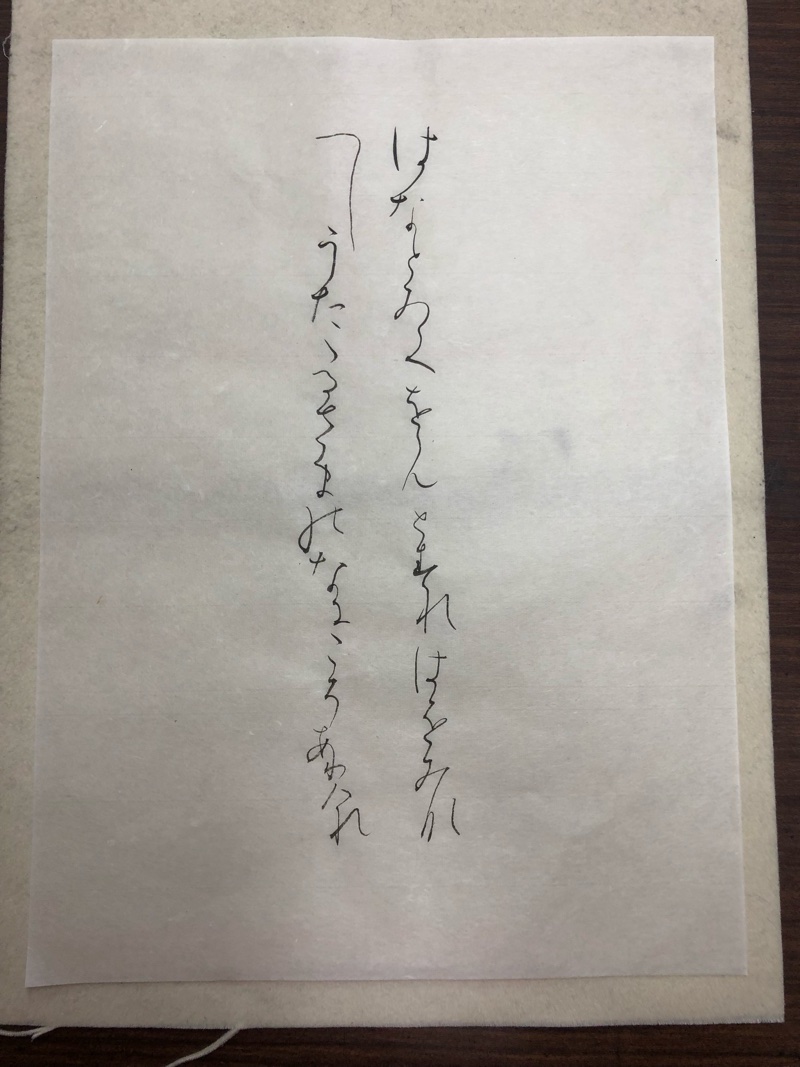 はなとみてをらんとすれはをみな
へしうたゝるさまのなにこそありけれ